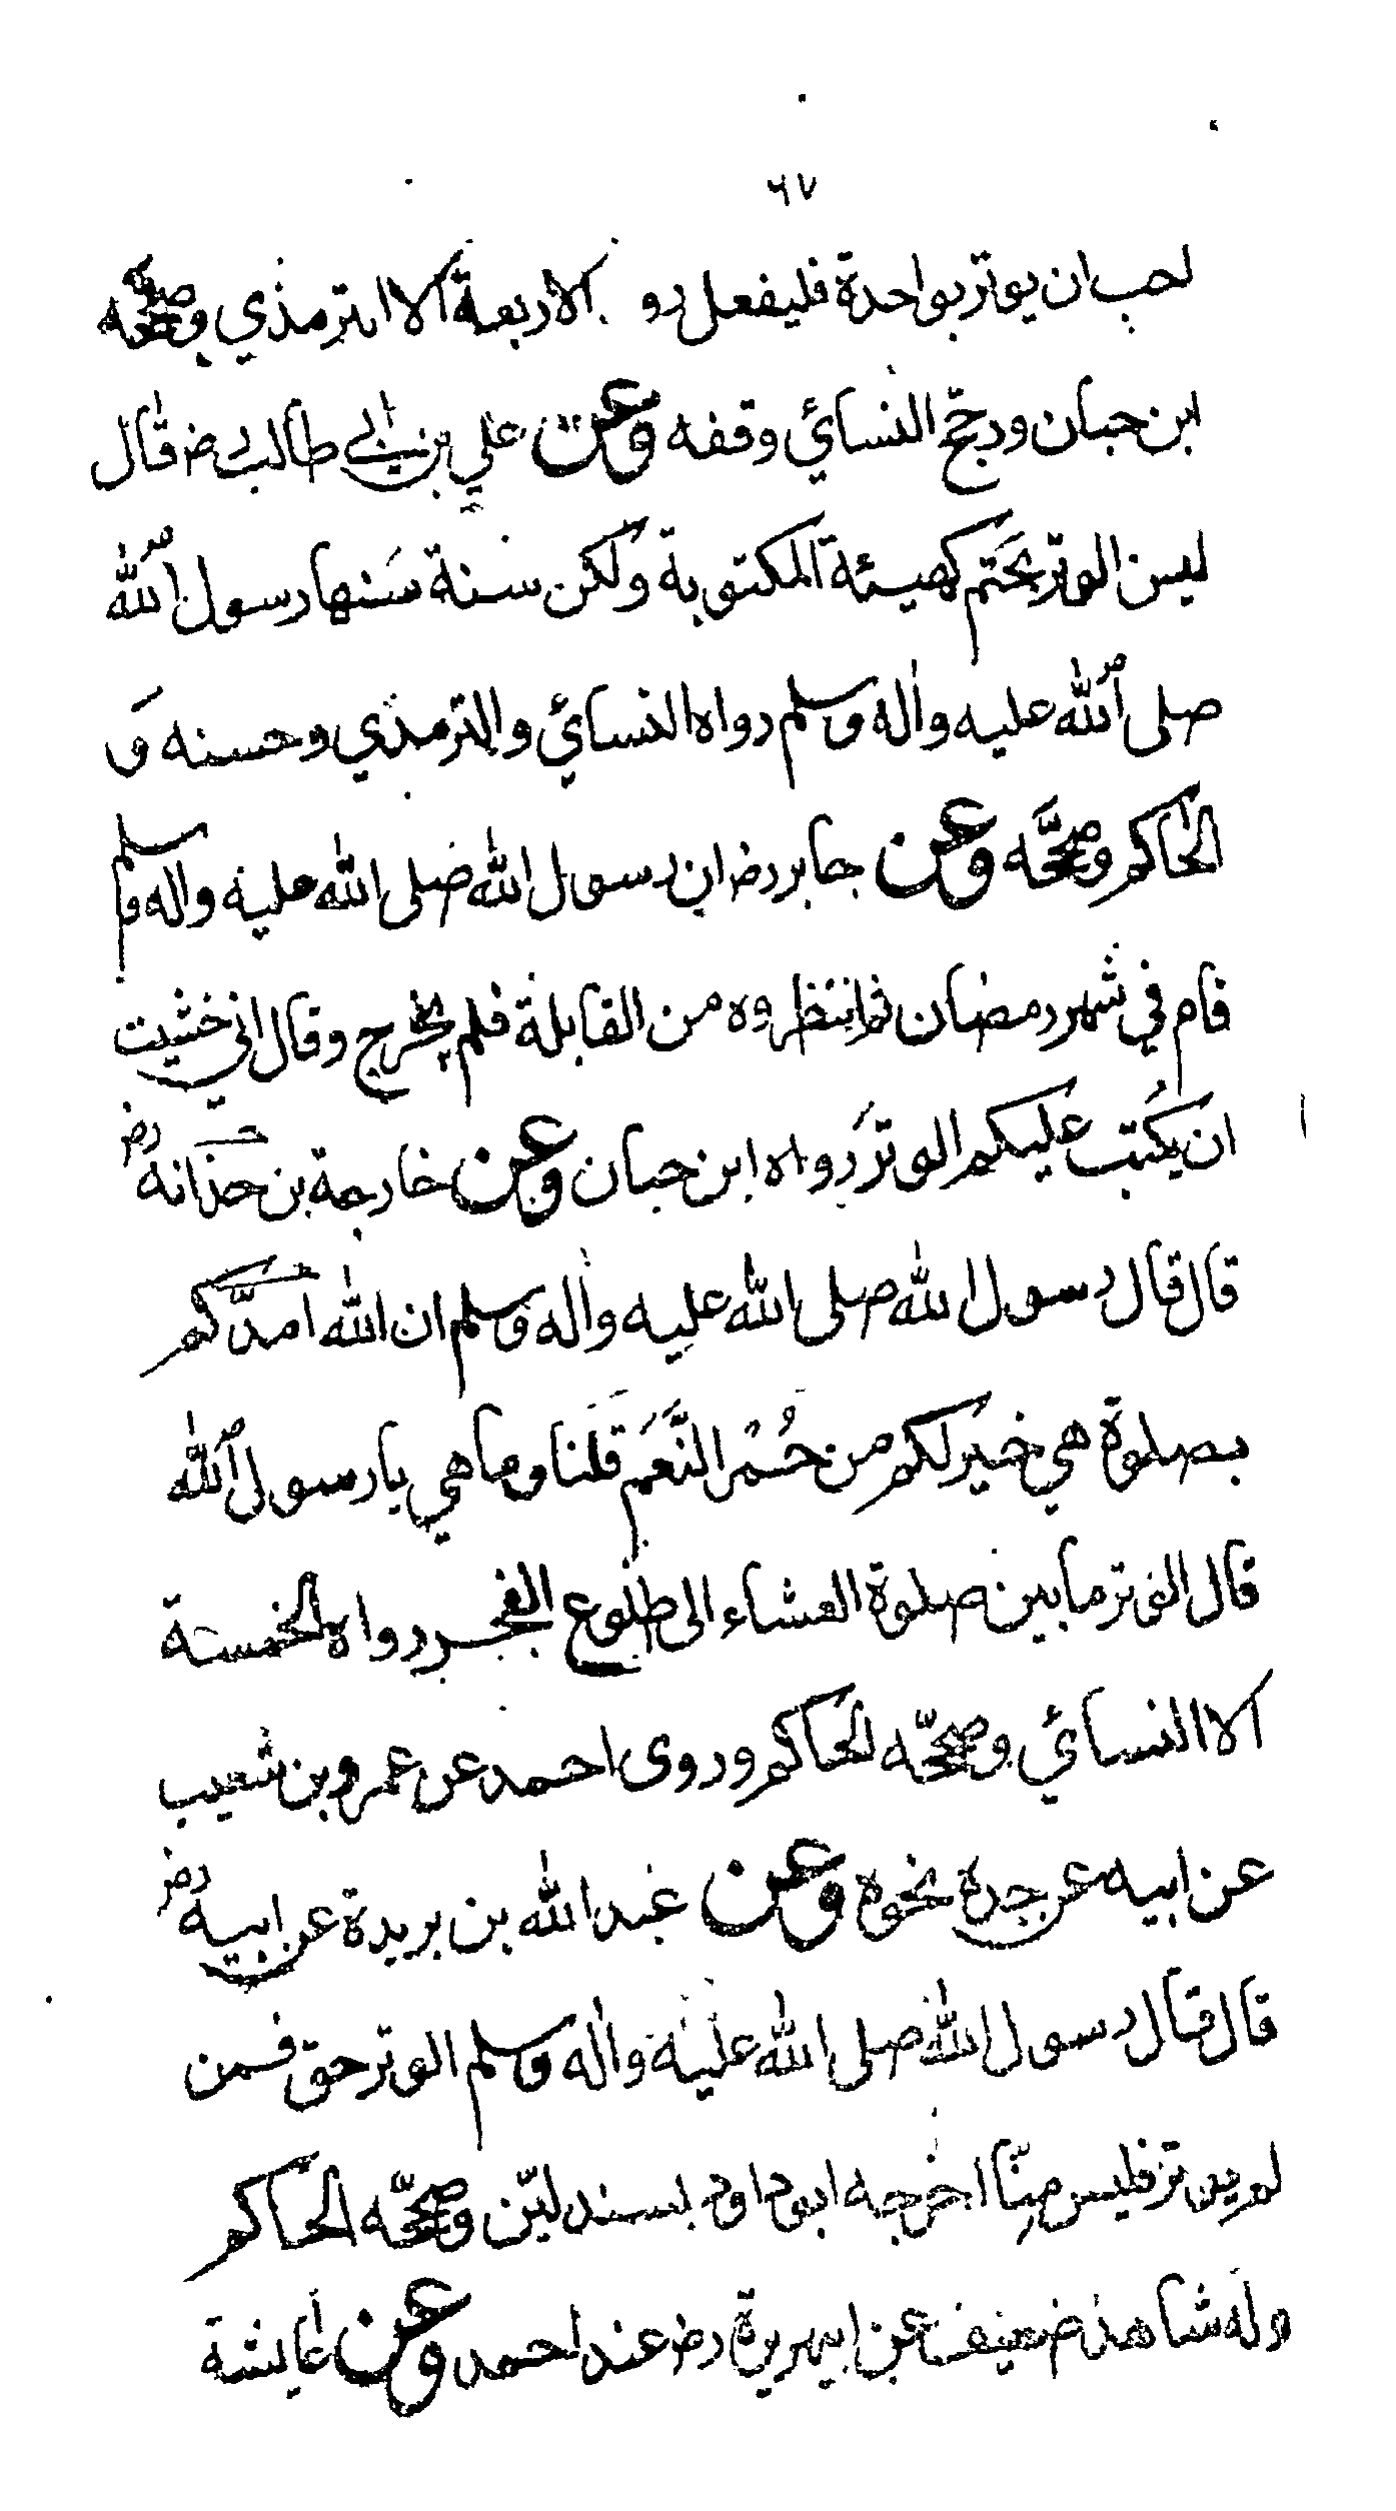 ٦٧
احب ان يوتر بواحدة فليفعل رو الاربعة الا الترمذي وصححه
ابن حبان ورجح النسائي وقفه وعن علي بن ابي طالب رض قال
ليس الوتر بحتم كهيئة المكتوبة ولكن سنة سَنها رسول الله
صلى الله عليه واله وسلم رواه النسائي والترمذي وحسنه وَ
الحاكم وصححَّه وعن جابر رض ان رسول الله صلى الله عليه واله وسلم
قام في شهر رمضان ثم انتظروه من القابلة فلم يخرج وقال اني خشيت
ان يُكتب عليكم الوتر رَواه ابن حبان وعن خارجة بن حذافه رض
قال قال رسول الله صلى الله عليه واله وسلم ان الله امدَّكم
بصلوة هي خير لكم من حُمْر النَّعَم قلنا وما هي يا رسول الله
قال الوتر ما بين صلوة العشاء الى طلوع الفجر رواه الخمسة
الا النسائي وصححّه الحاكم وروى احمد عن عمرو بن شعيب
عن ابيه عن جده نحوه وعن عبد الله بن بريدة عن ابيه رض
قال قال رسول الله صلى الله عليه واله وسلم الوتر حق فمن
لم يوتر فليس مِنّا اخرجه ابو داود بسند ليّن وصححّه الحاكم
وله شاهد ضعيف عن ابي هريرة رض عند احمد وعن عايشة